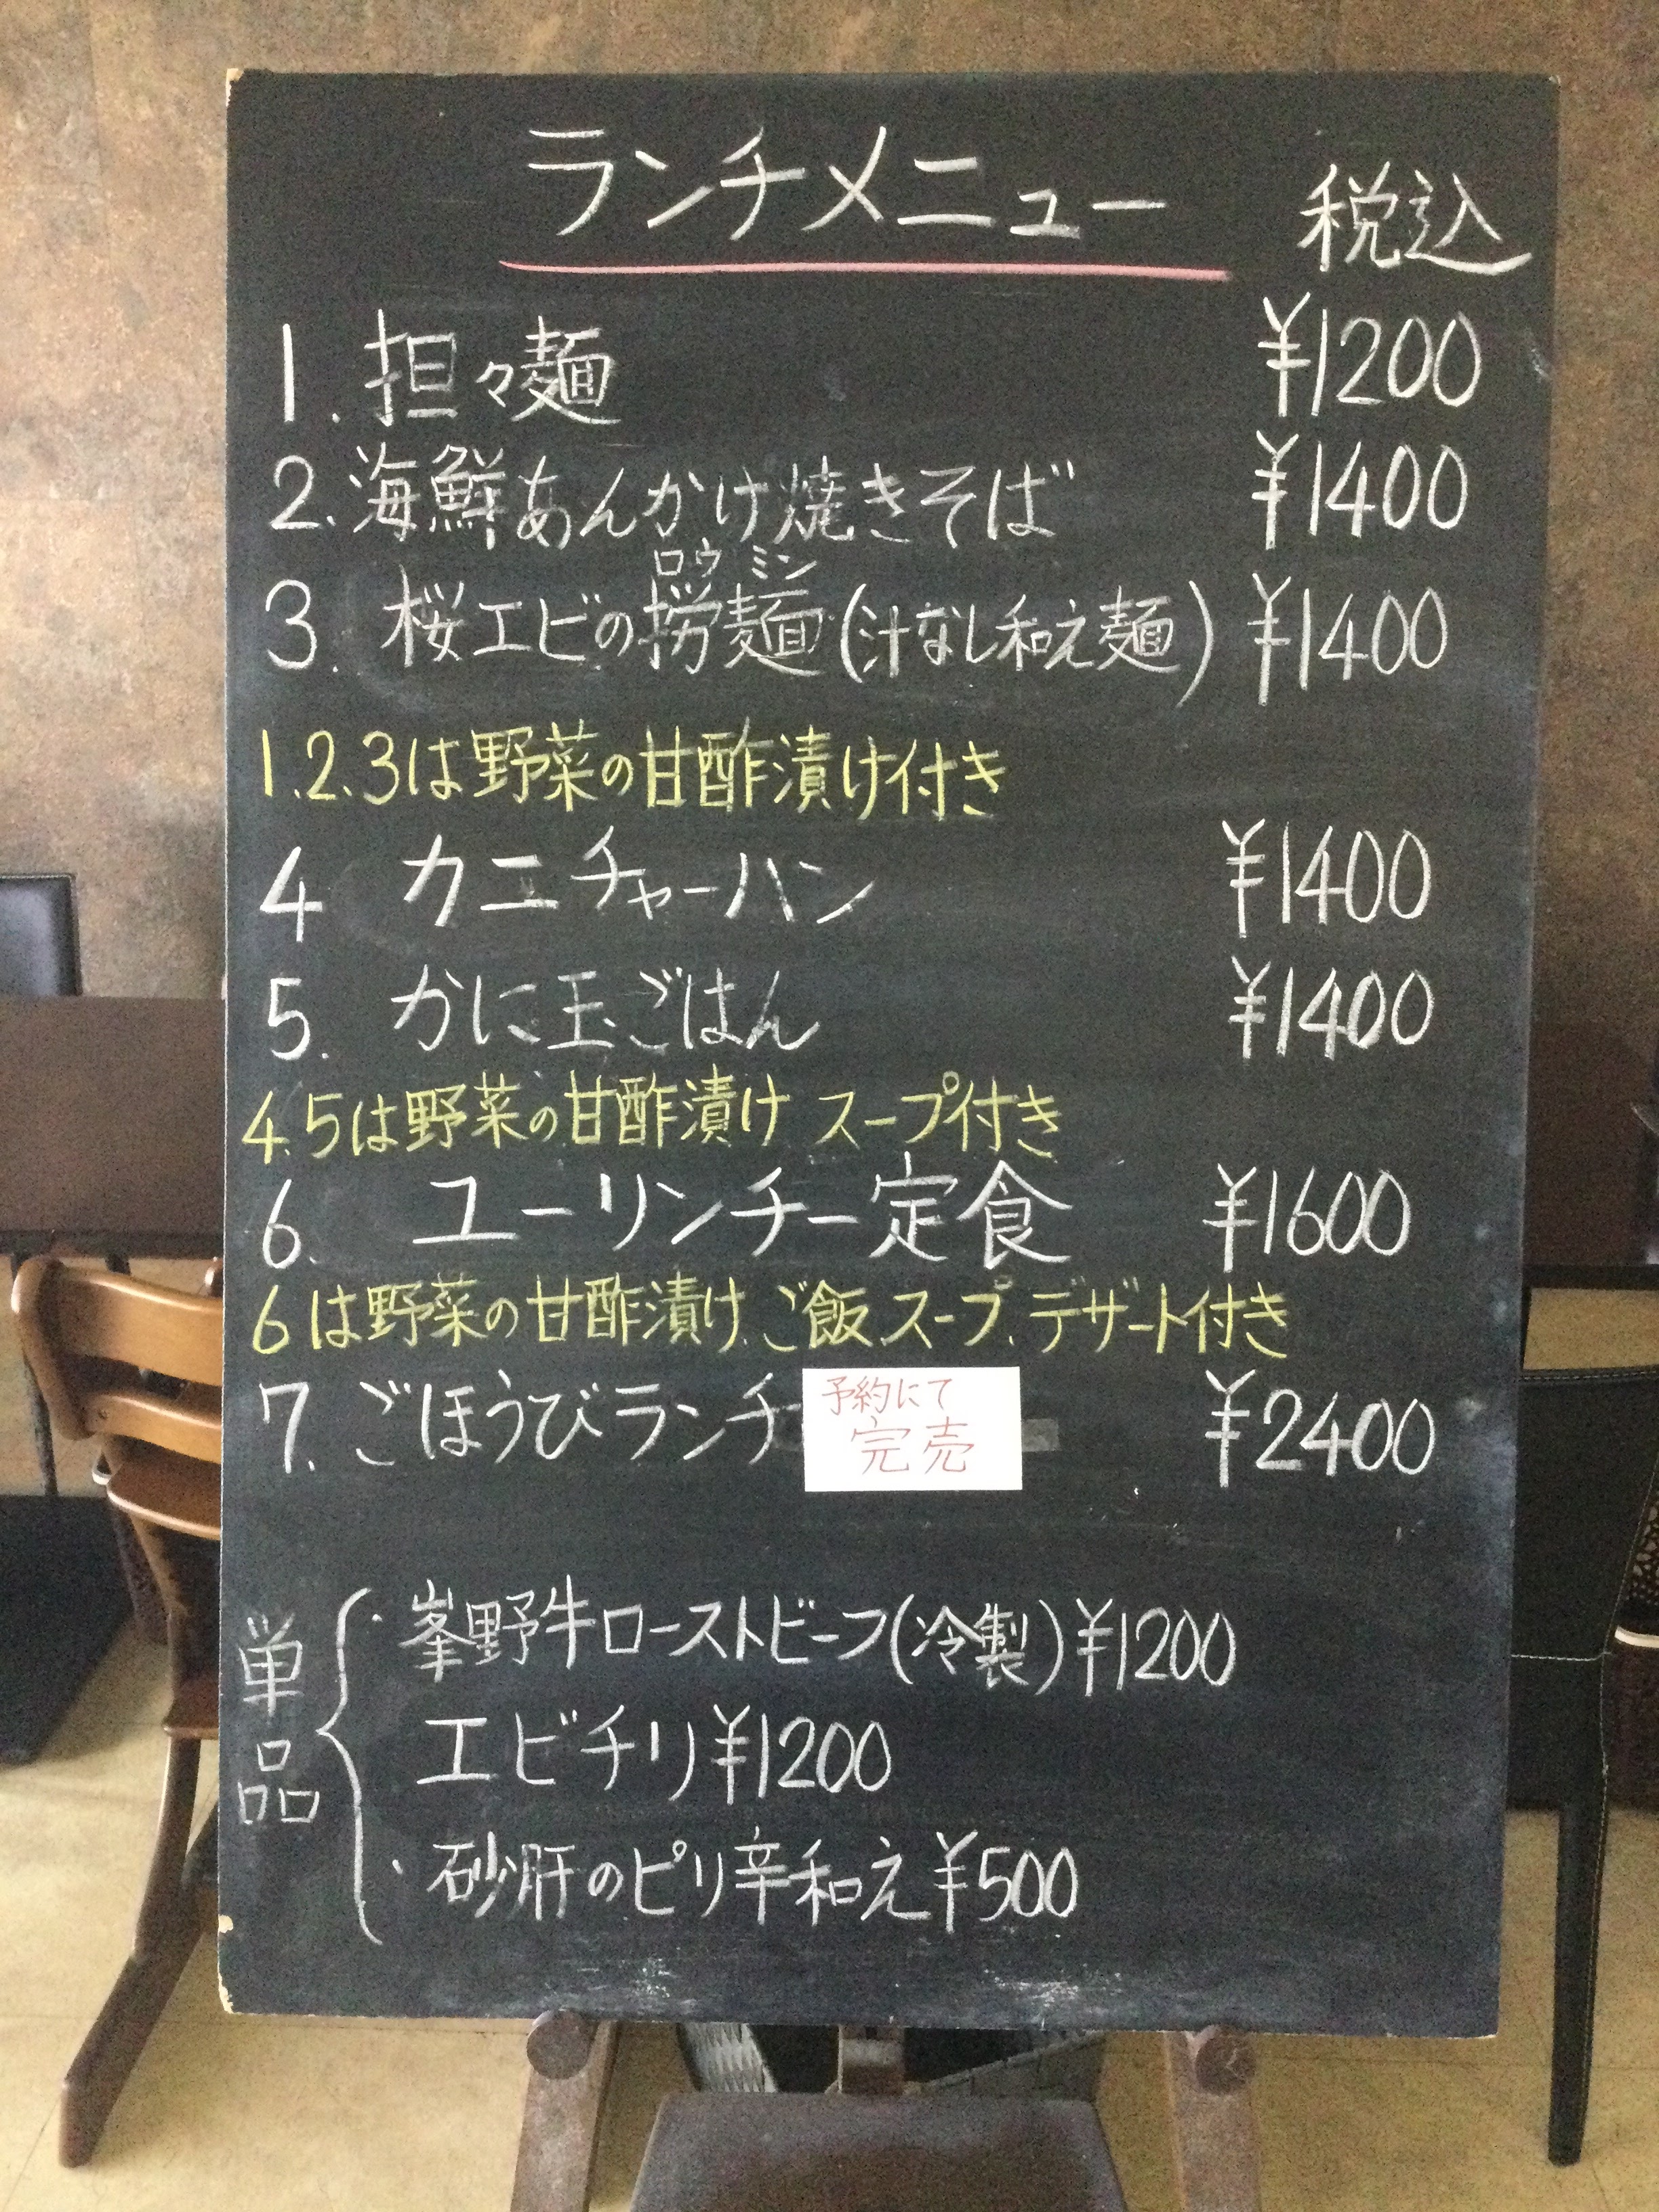 ランチメニュー 税込
1. 担々麺 ¥1200
2. 海鮮あんかけ焼きそば ¥1400
ロウミン
3. 桜エビの撈麺(汁なし和え麺) ¥1400
1.2.3は野菜の甘酢漬け付き
4 カニチャーハン ¥1400
5. かに玉ごはん ¥1400
4.5は野菜の甘酢漬け スープ付き
6. ユーリンチー定食 ¥1600
6は野菜の甘酢漬け、ご飯、スープ、デザート付き
7. ごほうびランチ 予約にて 完売 ¥2400
単品
・峯野牛ローストビーフ(冷製)¥1200
エビチリ¥1200
・砂肝のピリ辛和え¥500